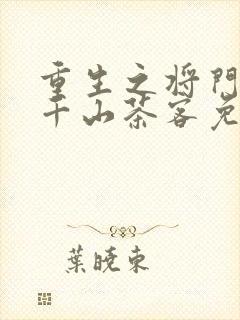 重生之将门
千山茶客免
葉曉東